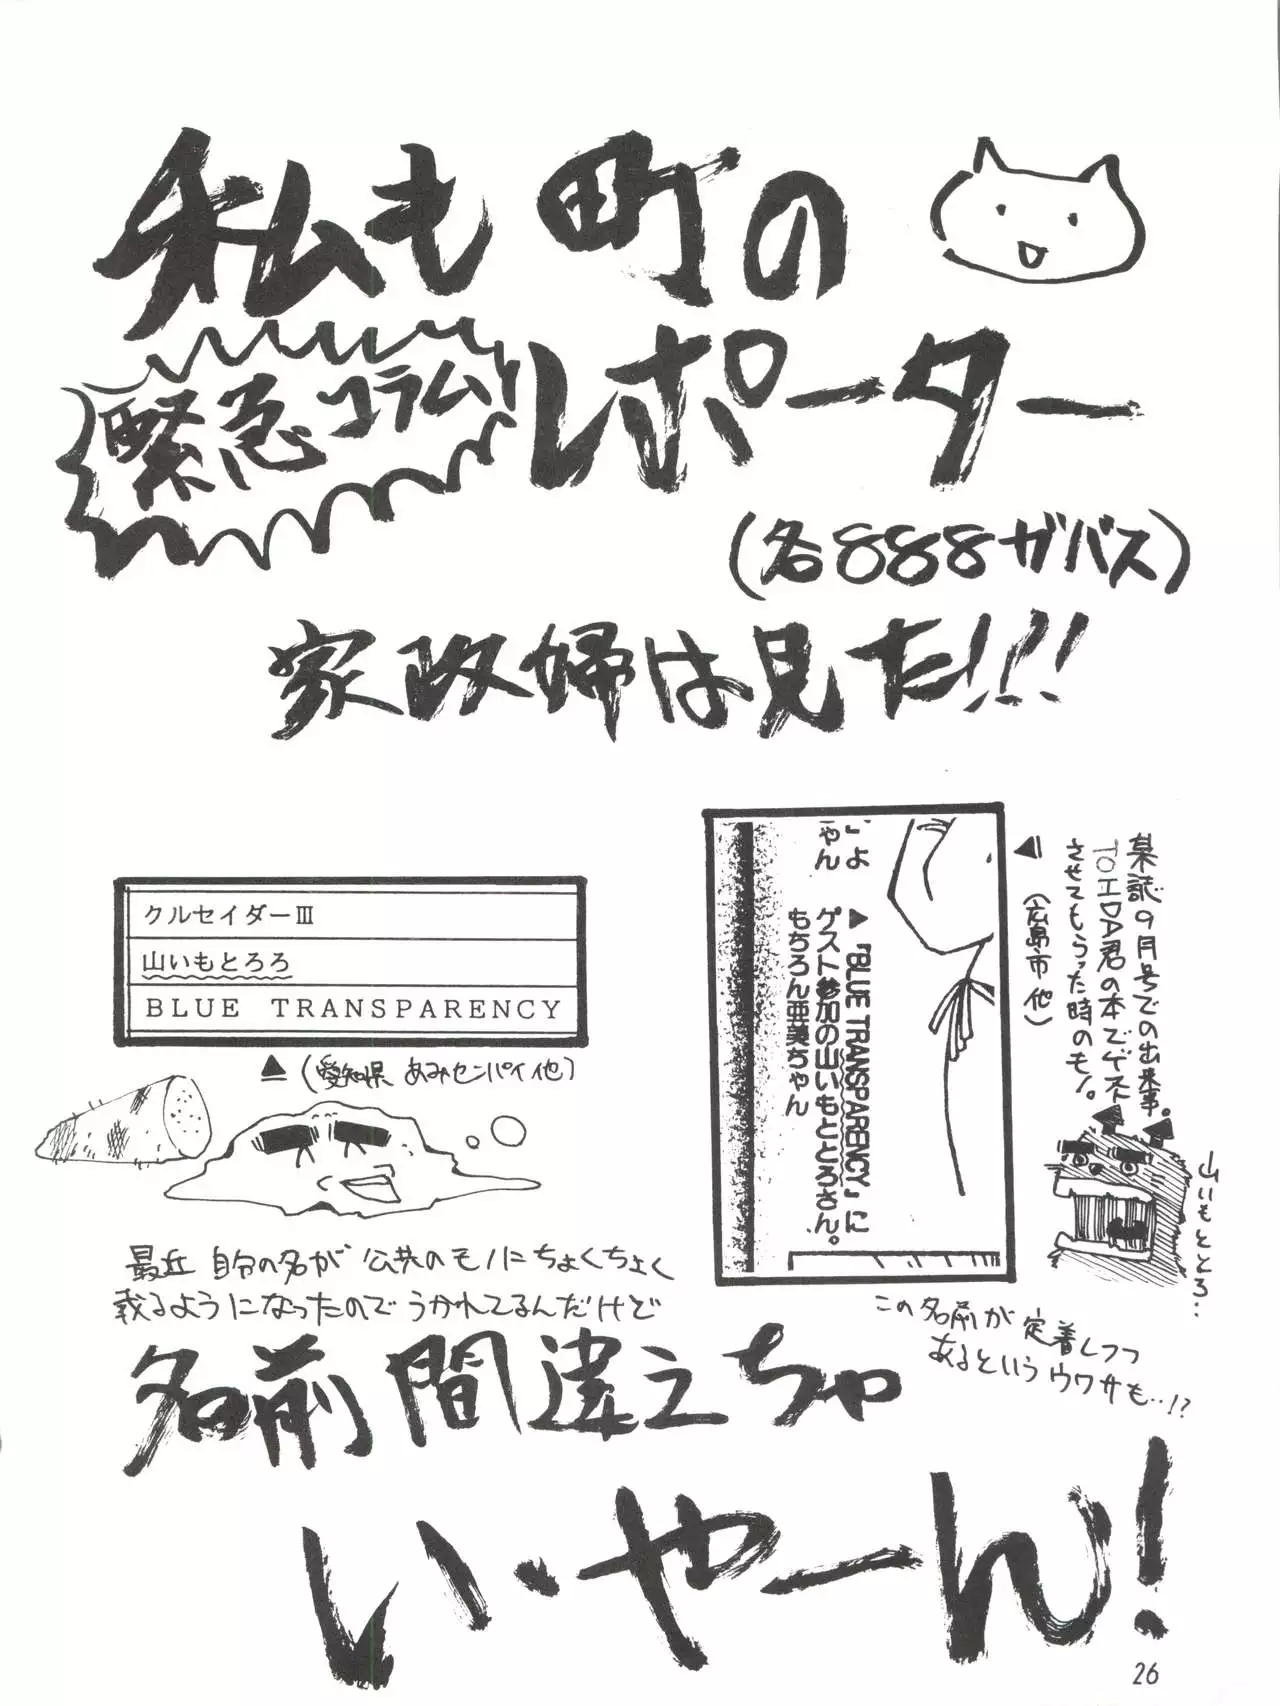 私も町の
レポーター
緊急コラム
(各888ガバス)
家政婦は見た!!!
クルセイダーⅢ
山いもとろろ
BLUE TRANSPARENCY
▲(愛知県 あみセンパイ他)
」よ
ゃん
▲『BLUE TRANSPARENCY』に
ゲスト参加の山いもととろさん。
もちろん亜美ちゃん
某誌9月号での出来事。
TOIDA君の本でゲスト
させてもらった時のモノ。
▲(広島市 他)
山いもととろ…
この名前が定着しつつ
あるというウワサも…!?
最近 自分の名が 公共のモノにちょくちょく
載るようになったのでうかれてるんだけど
名前間違えちゃ
い・やーん!
26